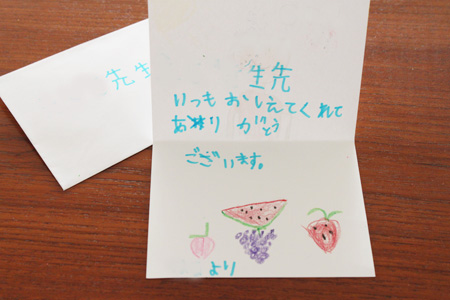 先生
生先
いつもおしえてくれて
ありがとう
ございます。
より